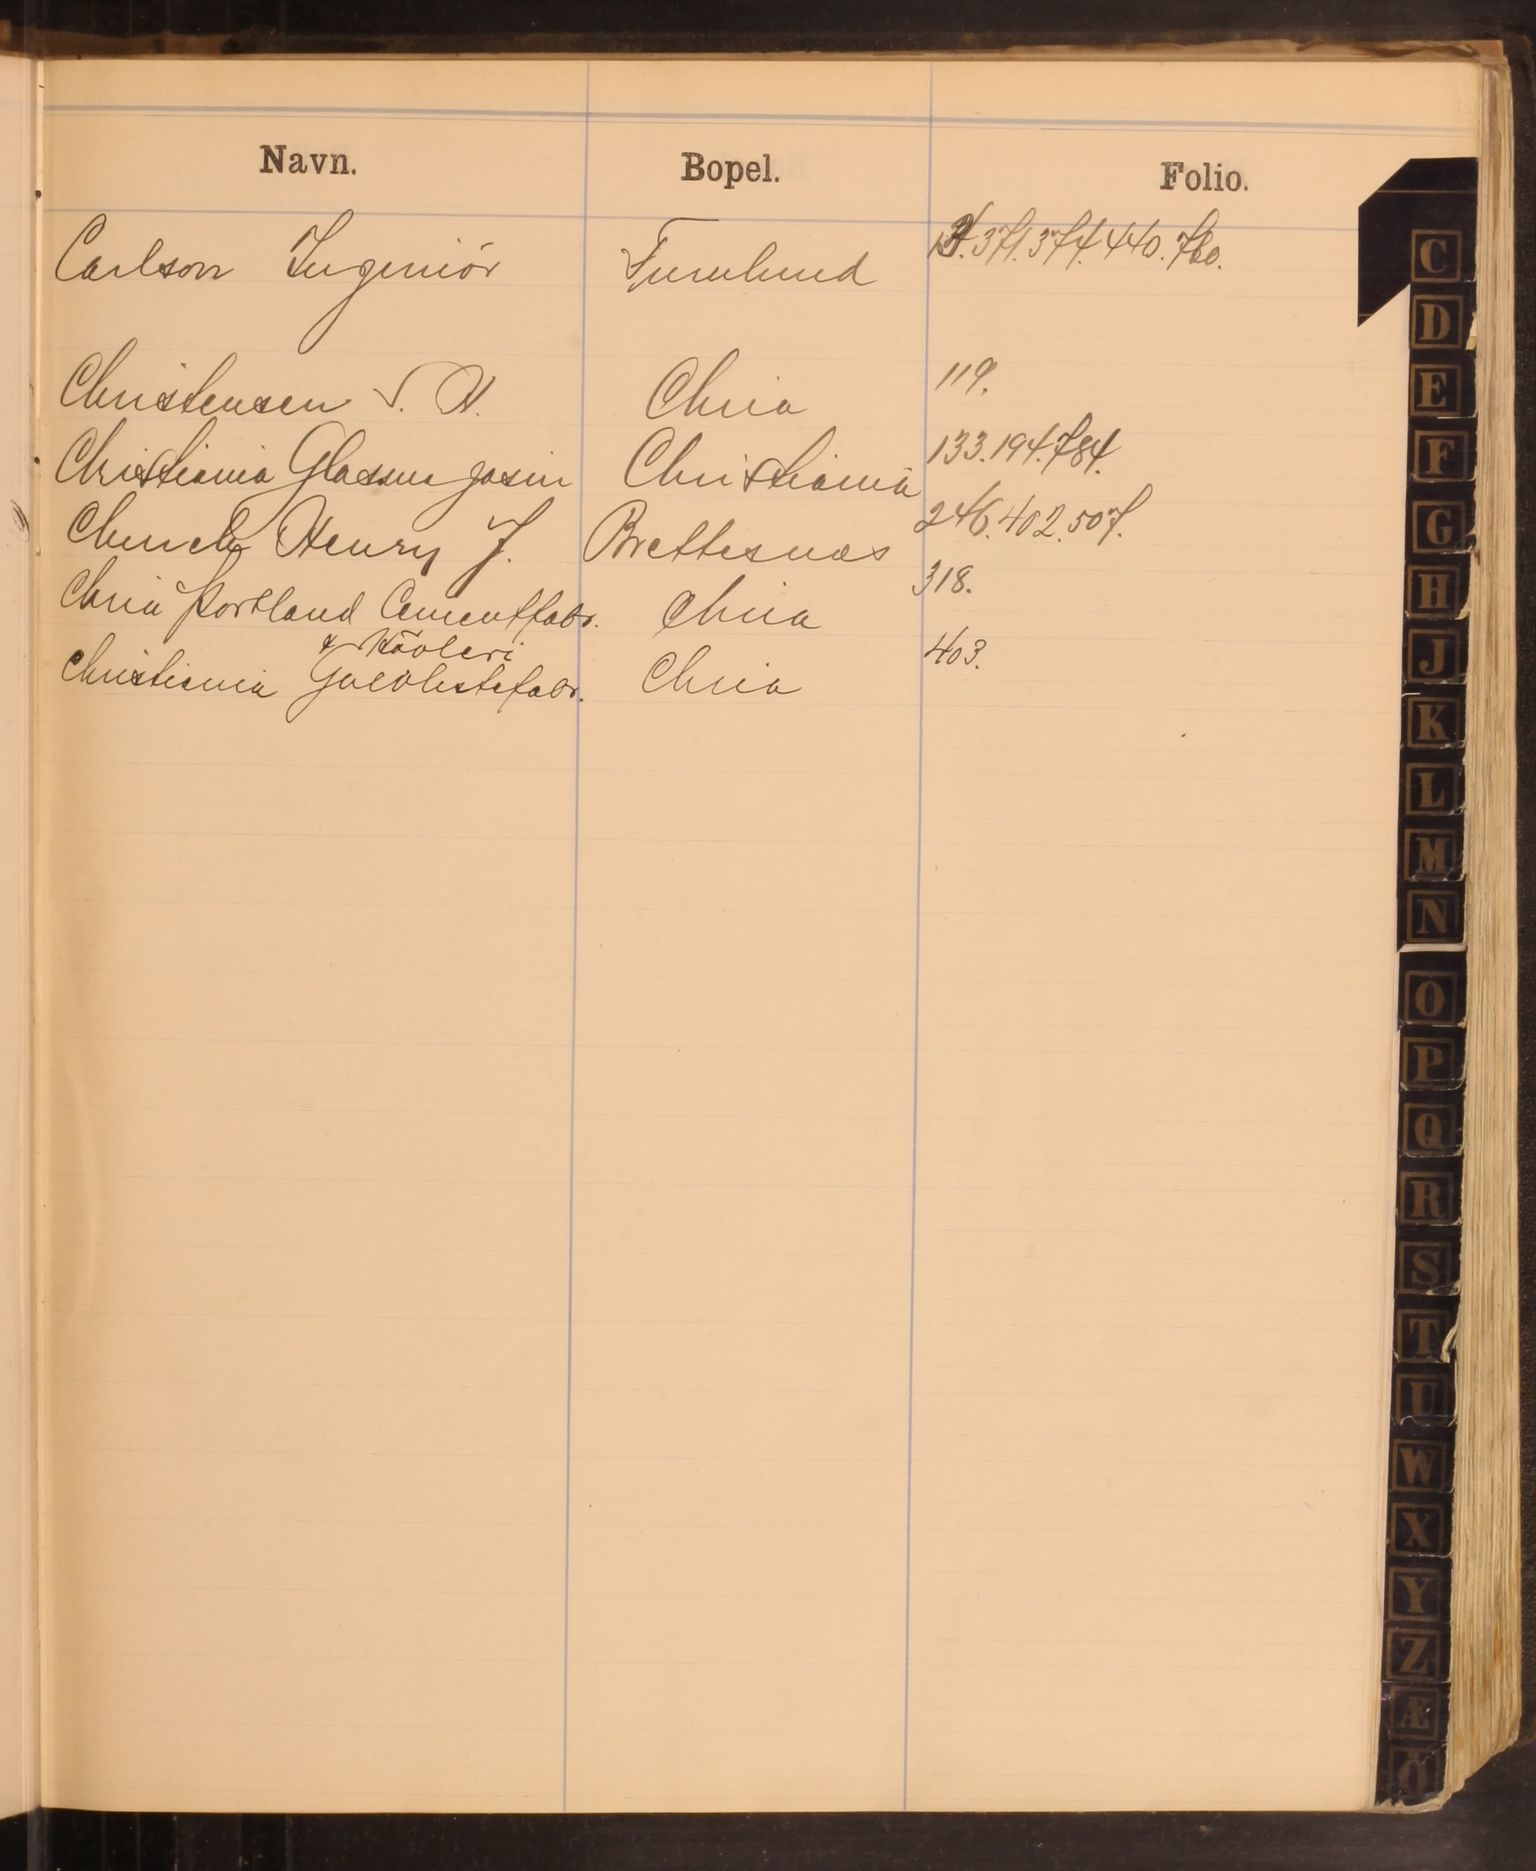 Navn. Bopel. Folio.
Carlson Ingeniör Furulund 371. 374. 440. 760.
Christensen S. H. Chria 119.
Christiania Glasmagasin Christiania 133. 194. 784.
Church Henry J. Brettesnæs 246. 402. 507.
Chria Portland Cementfabr. Chria 318.
& Høvleri
Christiania Gulvlistefabr. Chria 403.
C
D
E
F
G
H
J
K
L
M
N
O
P
Q
R
S
T
U
W
X
Y
Z
Æ
Ö